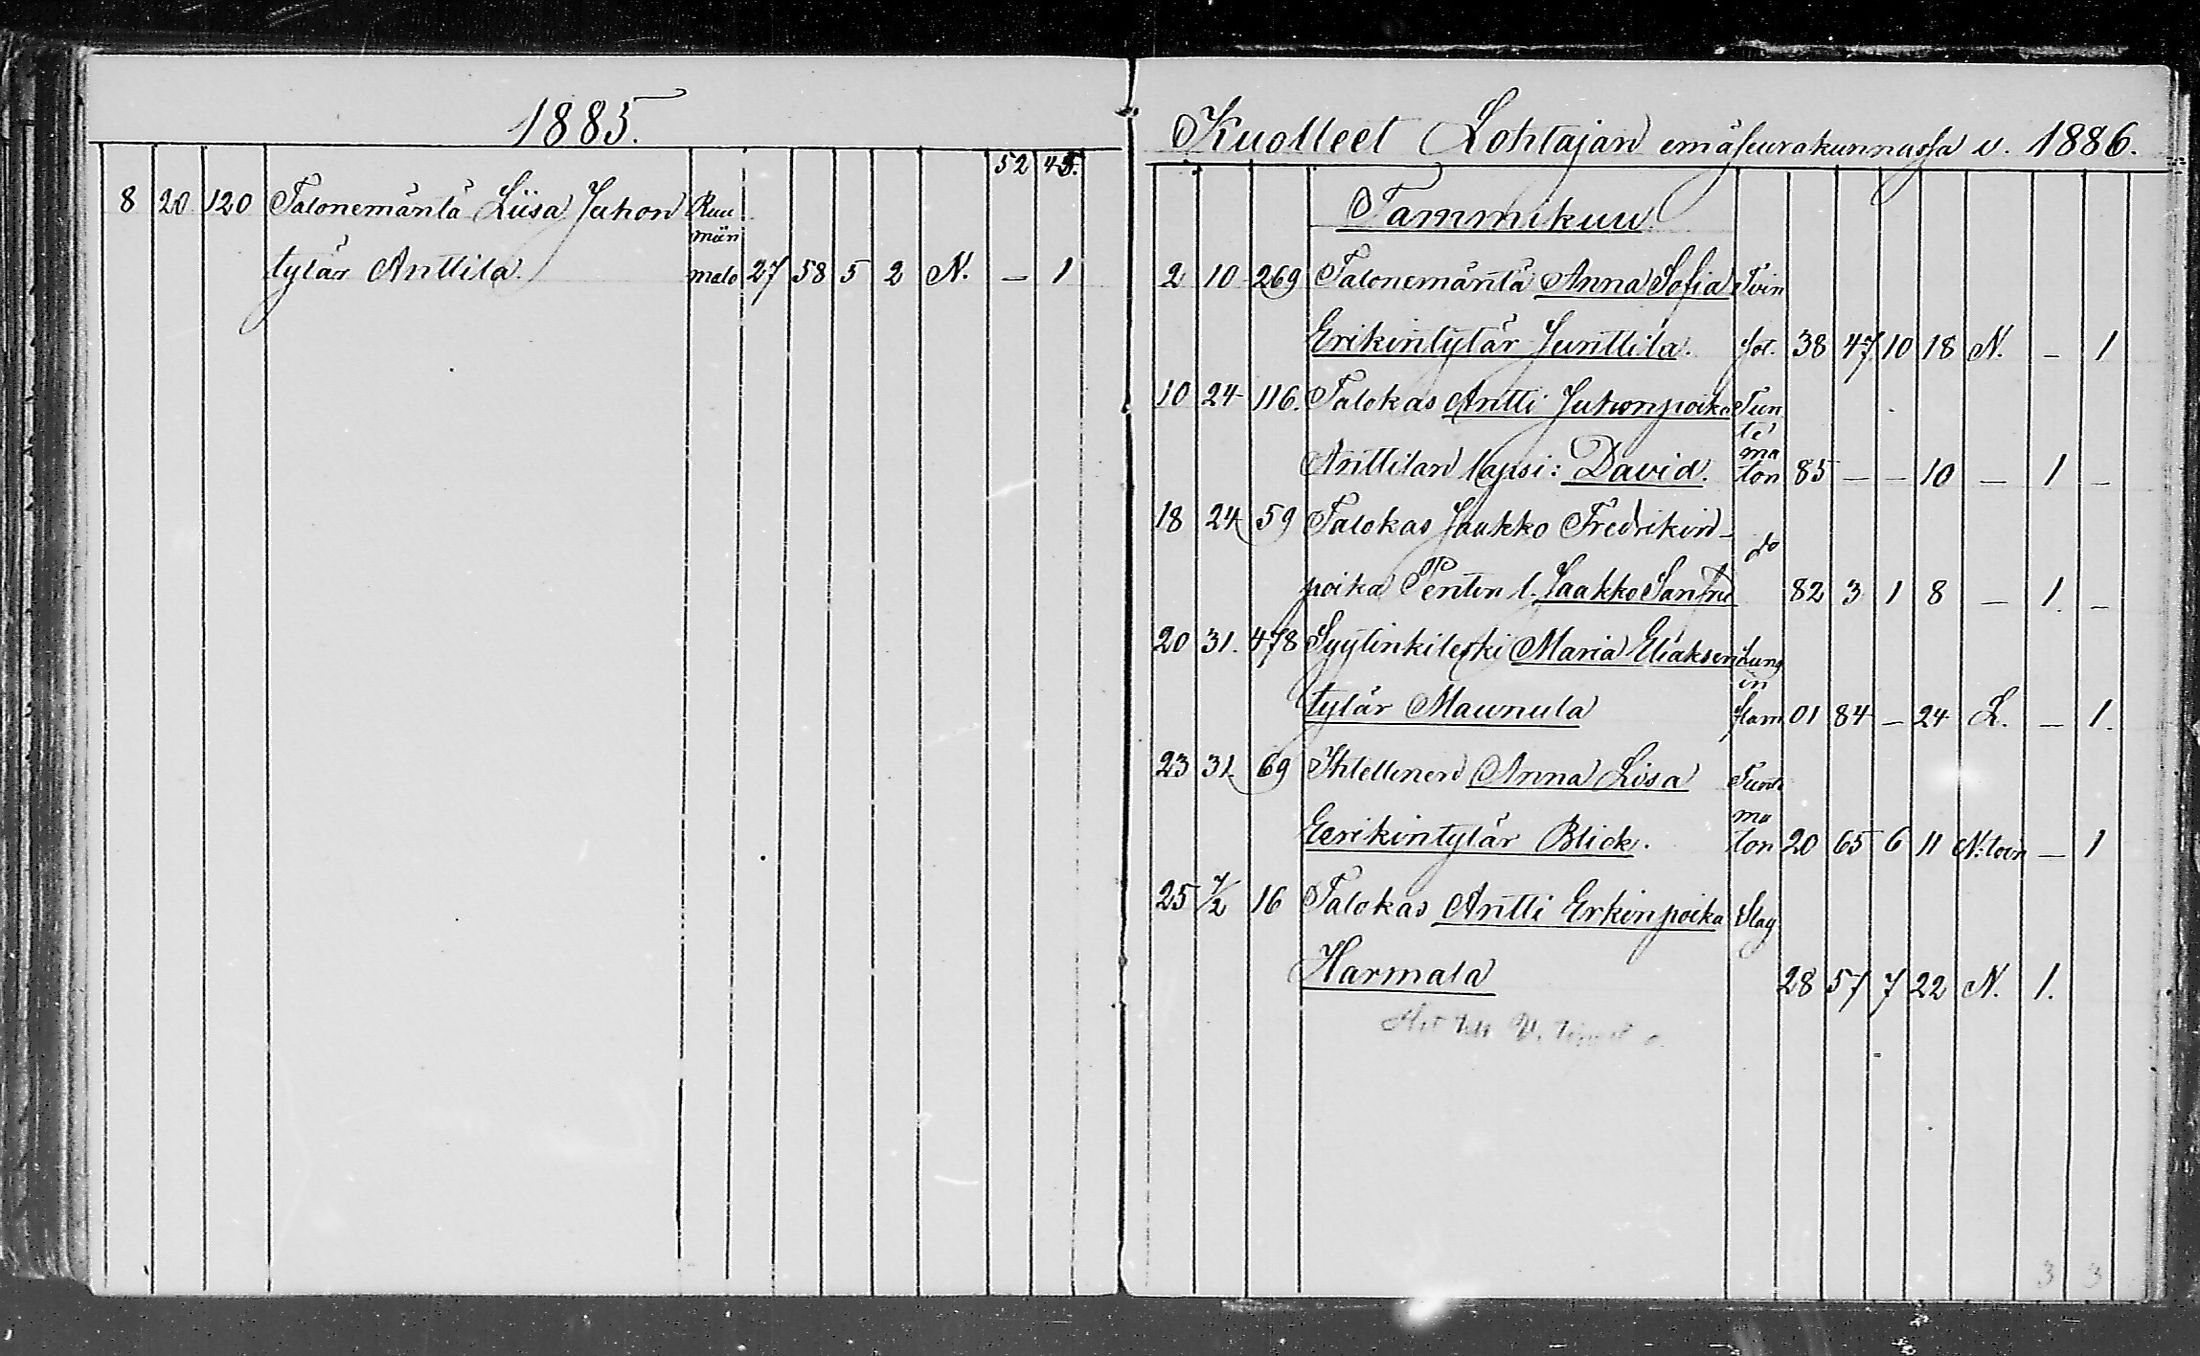 1885.
52 45.
8 20 120 Talonemäntä Liisa Juhon Ruu
miin
tytär Anttila. mato 27 58 5 2 N. — 1
Kuolleet Lohtajan emäseurakunnassa v. 1886.
Tammikuu
2 10 269 Talonemäntä Anna Sofia
Erikintytär Junttila. 38 47 10 18 N. — 1
10 24 116. Talokas Antti Juhonpoika Tun
te
ma
Anttilan lapsi: David. ton 85 — — 10 — 1 —
18 24 59 Talokas Jaakko Fredrikin- do
poika Pentin l. Jaakko Santri 82 3 1 8 — 1 —
20 31. 478 Syytinkileski Maria Eliaksen
tytär Maunula 01 84 — 24 L. — 1.
23 31 69 Itsellinen Anna Lisa Tunte
ma
Eerikintytär Blick. ton 20 65 6 11 N:toin — 1
25 7/2 16 Talokas Antti Erkinpoika Slag
Harmala 28 57 7 22 N. 1.
3 3